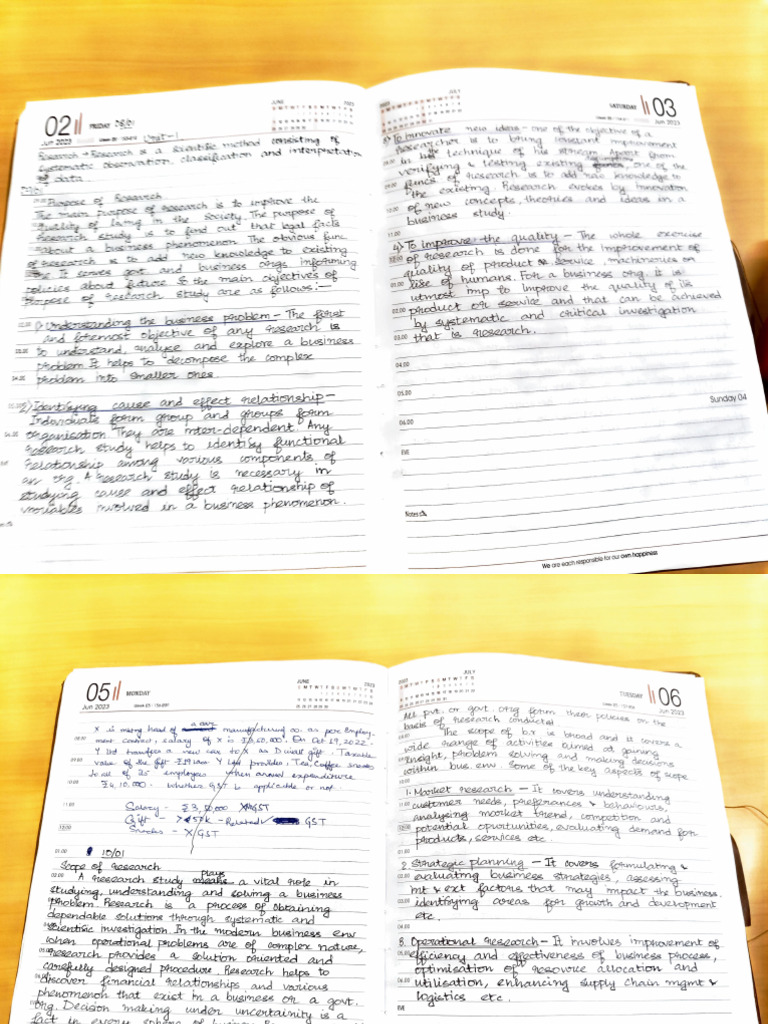 02
Jun 2023
FRIDAY 08/01
JUNE 2023
Unit-1
Research → Research is a scientific method consisting of
systematic observation, classification and interpretation
of data
Purpose of Research
The main purpose of research is to improve the
quality of living in the society. The purpose of
research study is to find out that legal facts
about a business phenomenon. The obvious func
of research is to add new knowledge to existing
one. It serves govt and business orgs informing
policies about future & the main objectives of
purpose of research study are as follows:-
1) Understanding the business problem - The first
and foremost objective of any research is
to understand, analyse and explore a business
problem. It helps to decompose the complex
problem into smaller ones
2) Identifying cause and effect relationship -
Individuals form group and groups form
organisation. They are inter-dependent. Any
research study helps to identify functional
relationship among various components of
an org. A research study is necessary in
studying cause and effect relationship of
variables involved in a business phenomenon.
2023 JULY
SATURDAY
03
Jun 2023
3) To innovate new ideas - one of the objective of a
researcher is to bring constant improvement
in the technique of his stream apart from
verifying & testing existing one of the
funcs of Research is to add new knowledge to
the existing Research evokes by innovation
of new concepts, theories and ideas in a
business study.
4) To improve the quality - The whole exercise
of research is done for the improvement of
quality of product & service, machineries or
life of humans. For a business org. it is
utmost imp to improve the quality of its
product or service and that can be achieved
by systematic and critical investigation
that is research.
Sunday 04
Notes
We are each responsible for our own happiness
05
Jun 2023
MONDAY
JUNE 2023
X is head of a car manufacturing co. as per employ-
ment contract, salary of X is ₹3,60,000. On Oct 19, 2022.
Y ltd transfers a new car to X as Diwali gift. Taxable
value of the gift - Y ltd provides, Tea, Coffee snacks
to all of its 25 employees annual expenditure
₹4,10,000. Whether GST is applicable or not.
Salary - X GST
Gift - > 50k - Related GST
Snacks - X GST
10/01
Scope of Research
A Research study plays a vital role in
studying, understanding and solving a business
problem. Research is a process of obtaining
dependable solutions through systematic and
scientific investigation. In the modern business env
when operational problems are of complex nature,
research provides a solution oriented and
carefully designed procedure. Research helps to
discover financial relationships and various
phenomenon that exist in a business or a govt.
org. Decision making under uncertainity is a
fact in every sphere of
2023 JULY
TUESDAY
06
Jun 2023
All pvt. or govt. org form their policies on the
basis of research conducted
The scope of b.r is broad and it covers a
wide range of activities aimed at gaining
insight, problem solving and making decisions
within bus. env. Some of the key aspects of scope
1. Market research - It covers understanding
customer needs, preferances & behaviours,
analysing market trend, competition and
potential opurtunities, evaluating demand for
products, services etc.
2. Strategic planning - It covers formulating &
evaluating business strategies, assessing
int & ext factors that may impact the business,
identifying areas for growth and development
etc.
3. Operational research - It involves improvement of
efficiency and effectiveness of business process,
optimisation of resource allocation and
utilisation, enhancing supply chain mgmt &
logistics etc.